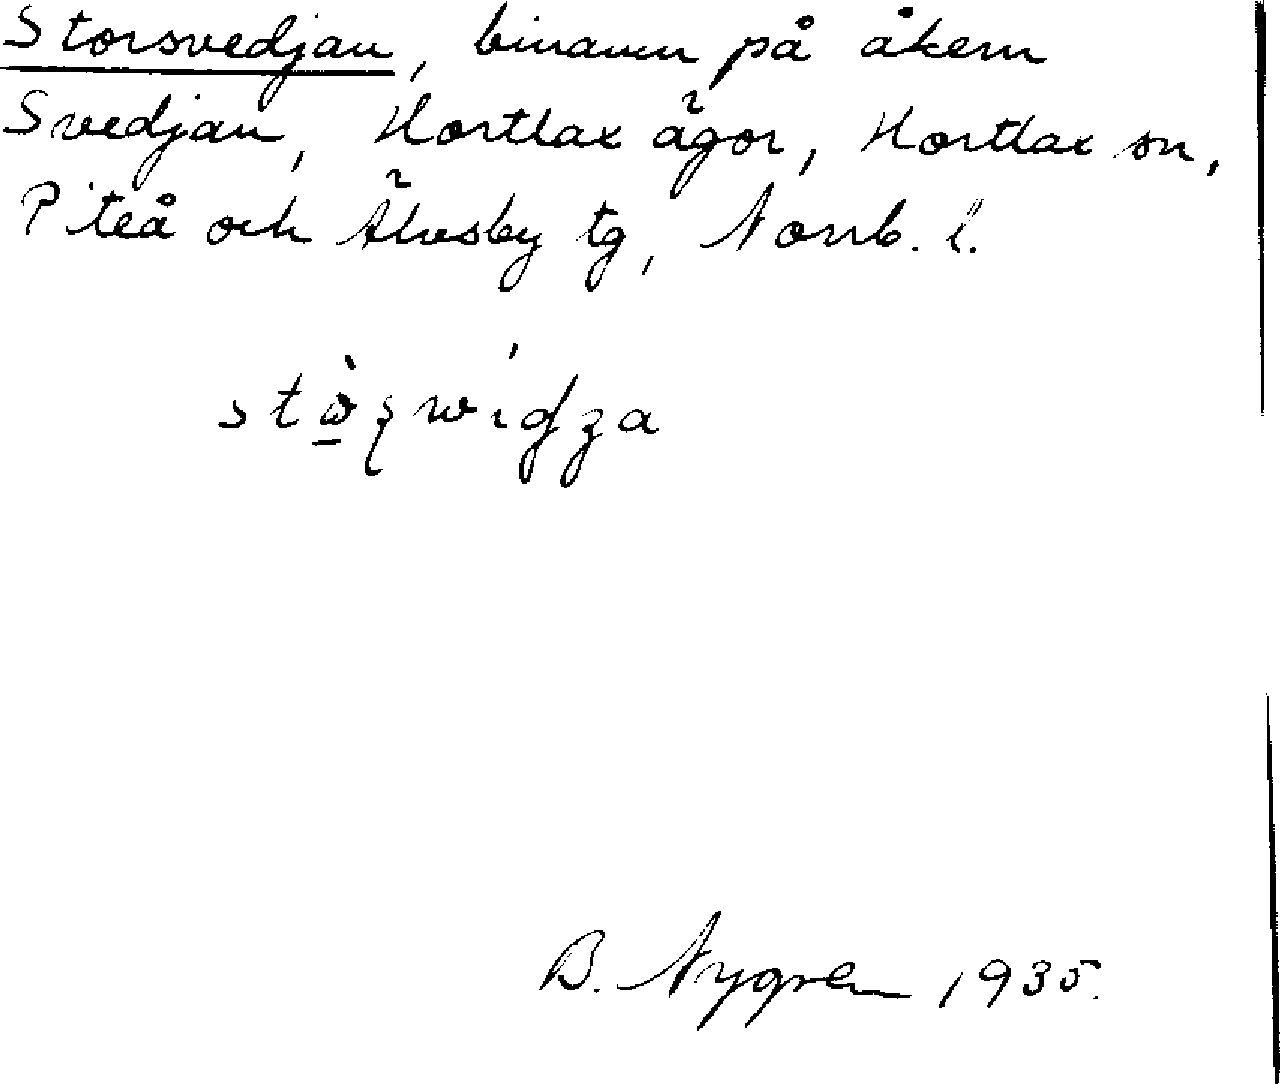 Storsvedjan, binamn på åkern
Svedjan, Hortlax ägor, Hortlax sn,
Piteå och Älvsby tg, Norrb. l.
B. Nygren 1935.